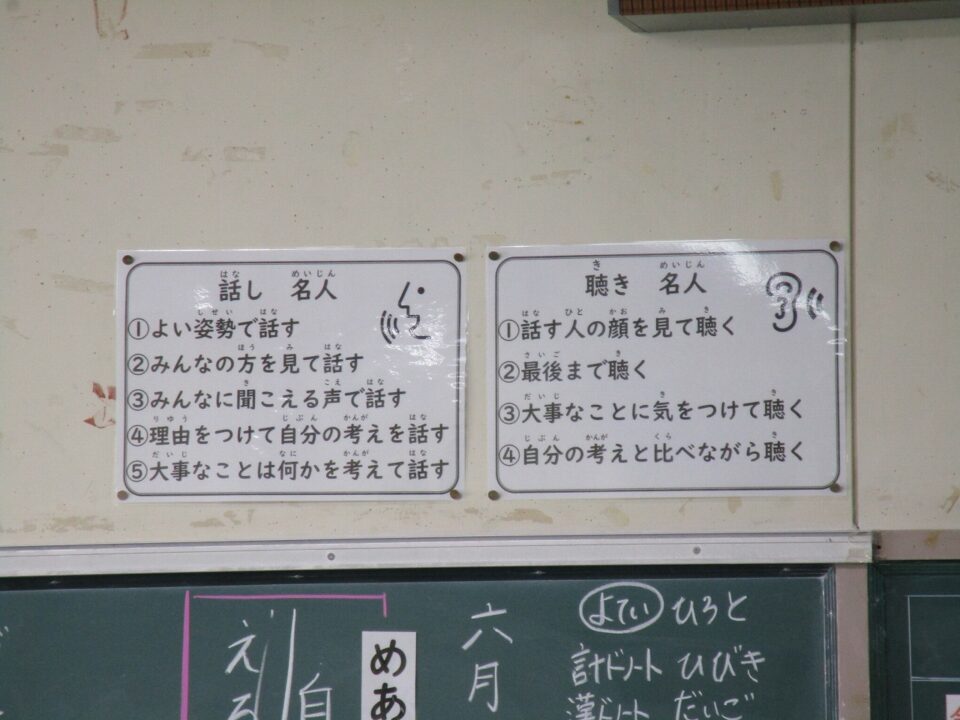 話し 名人
①よい姿勢で話す
②みんなの方を見て話す
③みんなに聞こえる声で話す
④理由をつけて自分の考えを話す
⑤大事なことは何かを考えて話す
聴き 名人
①話す人の顔を見て聴く
②最後まで聴く
③大事なことに気をつけて聴く
④自分の考えと比べながら聴く
よてい ひろと
計ドノート ひびき
漢ドノート だいご
六月
めあ
自
える